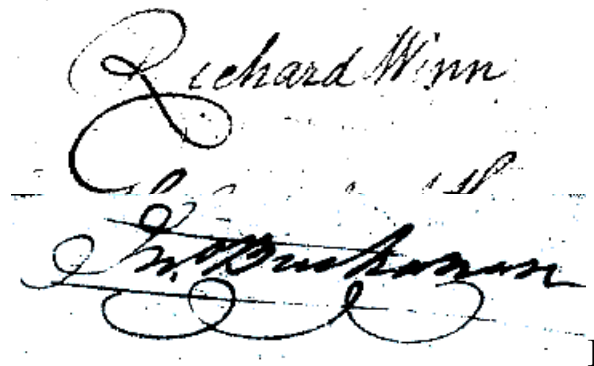 Richard Winn
Jno. Buchanan